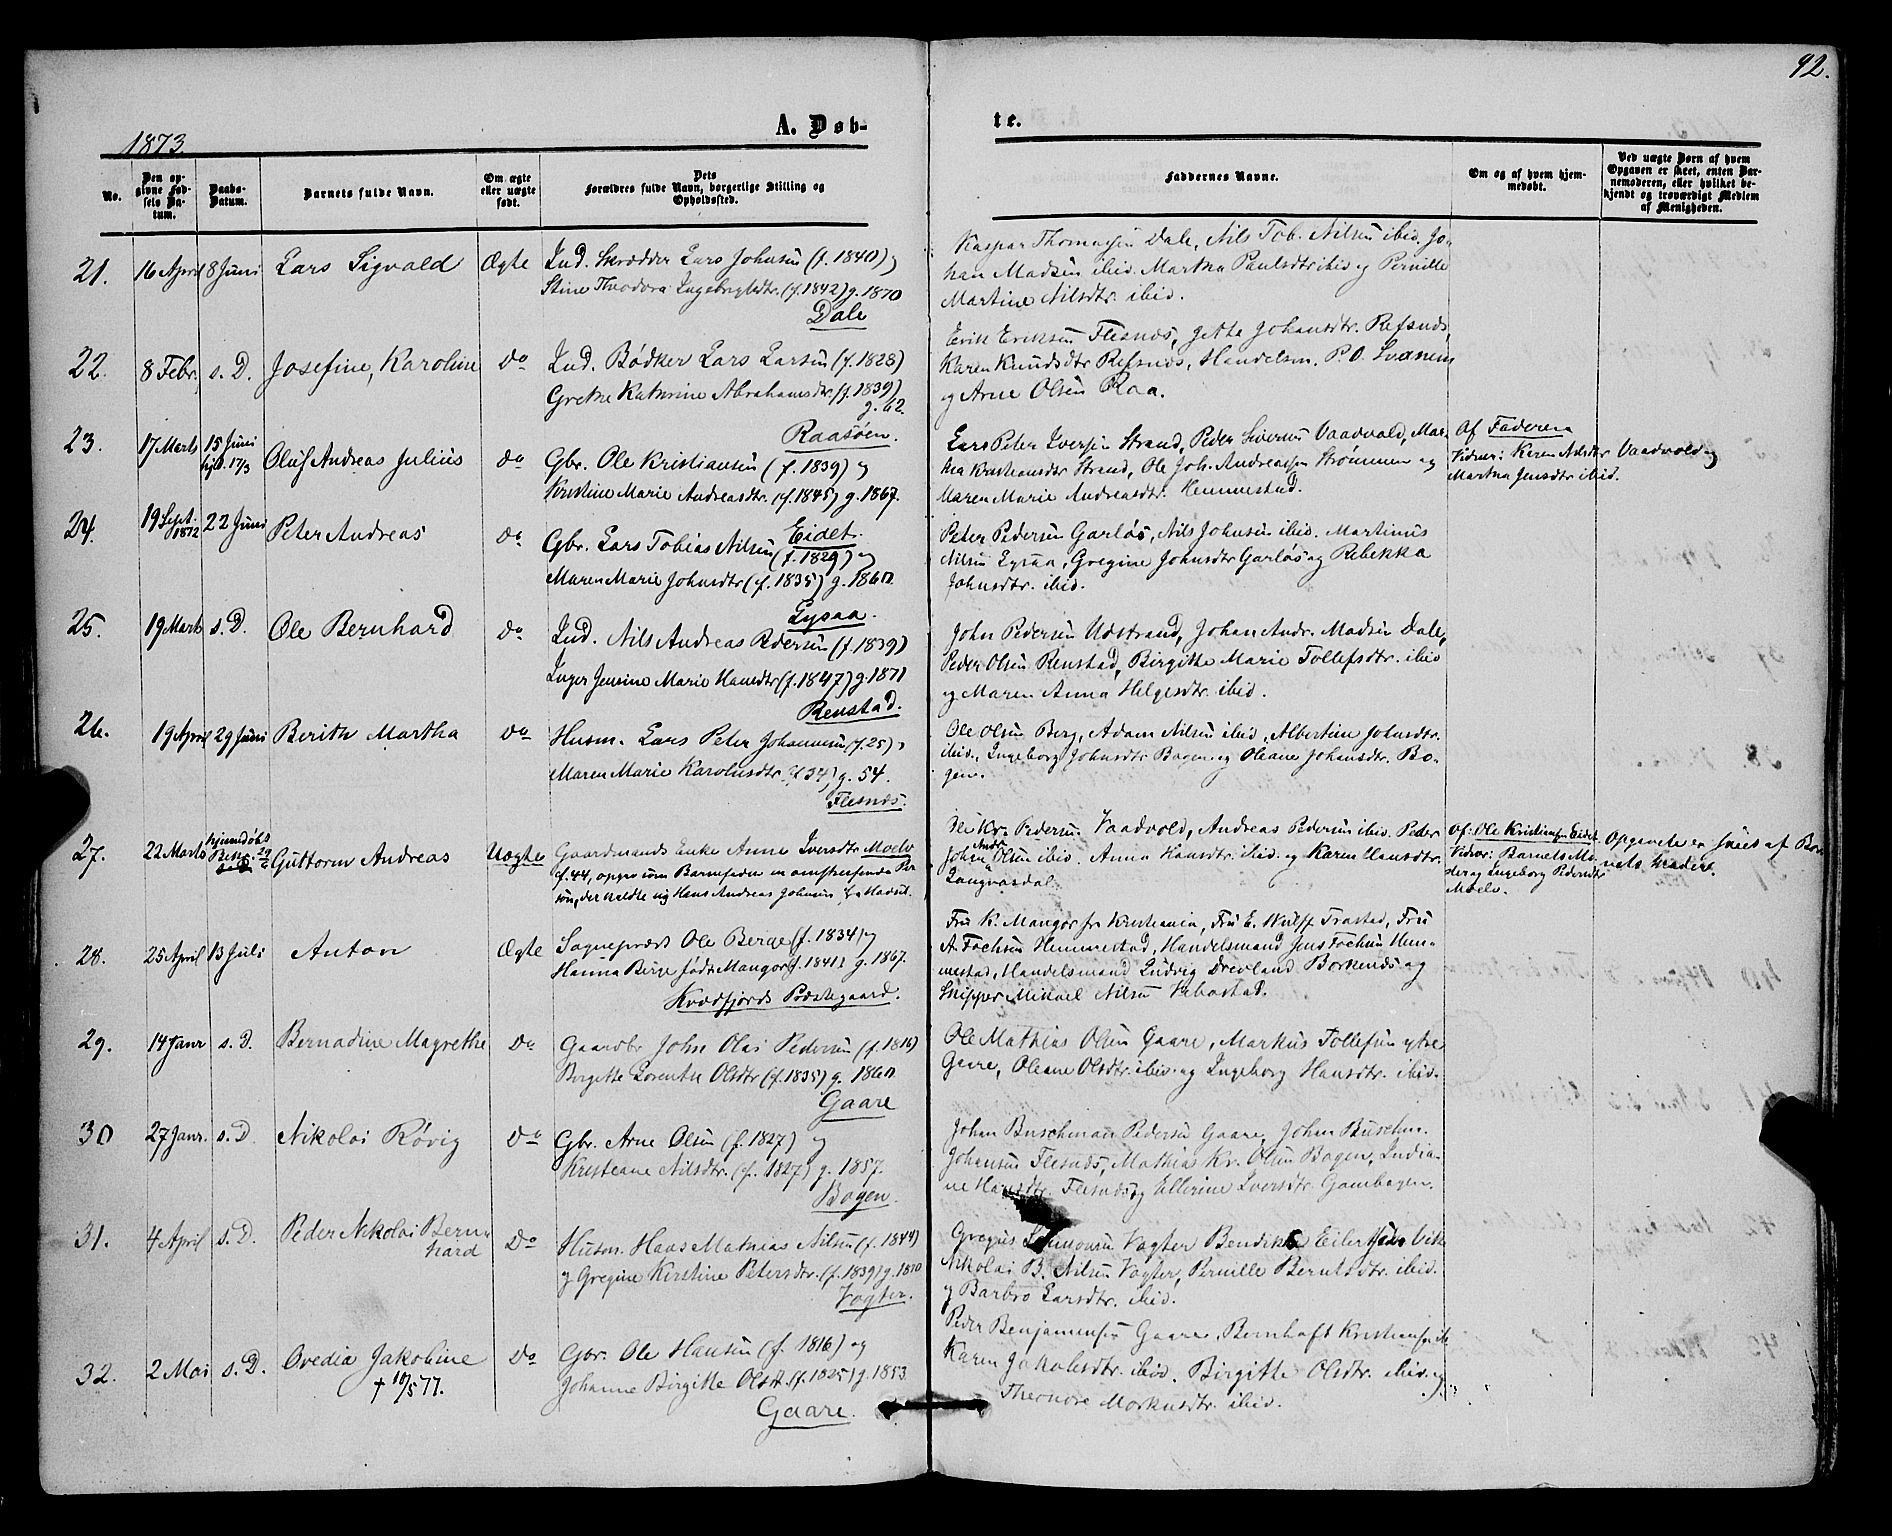 92.
1873.
A. Døb-
te.
No.
Den op-
givne Fød-
sels Da-
tum.
Daabs-
Datum.
Barnets fulde Navn.
Om ægte
eller uægte
født.
Dets
Forældres fulde Navn, borgerlige Stilling og
Opholdssted.
Faddernes Navne.
Om og af hvem hjem-
medøbt.
Ved uægte Børn af hvem
Opgaven er skeet, enten Bar-
nemoderen, eller hvilket be-
kjendt og troværdigt Medlem
af Menigheden.
21.
16 April
8 Juni
Lars Sigvald
Ægte
Ind. Skrædder Lars Johnsen (f. 1840) og
Stine Theodora Ingebrigtsdtr. (f. 1842) g. 1870
Dale
Kaspar Thomasen Dale, Nils Tob. Nilsen ibid. Jo-
han Madsen ibid. Martha Paulsdtr ibid og Pernille
Martine Nilsdtr. ibid.
22.
8 Febr.
s. D.
Josefine, Karoline
do
Ind. Bødker Lars Larsen (f. 1828)
Grethe Kathrine Abrahamsdtr. (f. 1839)
g. 62.
Raasøen.
Erik Eriksen Flesnæs, Jette Johansdtr. Refsnæs,
Karen Knudsdtr Refsnæs, Handelsm. P. O.
og Arne Olsen Raa.
23.
17 Marts
15 Juni
hjd. 17/3
Oluf Andreas Julius
do
Gbr. Ole Kristiansen (f. 1839) og
Kristine Marie Andreasdtr. (f. 1845) g. 1867.
Eidet.
Lars Peter Iversen Strand, Peder Siversen Vaadvold, Mar-
tha Kristiansdtr Strand, Ole Joh. Andreassen Strømmen og
Maren Marie Andreasdtr. Hemmestad.
Af Faderen
Vidner: Karen Nilsdtr Vaadvold og
Martha Jensdtr ibid.
24.
19 Sept.
1872
22 Juni
Peter Andreas
do
Gbr. Lars Tobias Nilsen
(f. 1829) og
Maren Marie Johnsdtr (f. 1835) g. 1860.
Eysaa.
Peter Pedersen Garløs, Nils Johnsen ibid. Martinus
Nilsen Eysaa, Gregine Johnsdtr Garløs og Rebekka
Johnsdtr. ibid.
25.
19 Marts
s. D.
Ole Bernhard
do
Ind. Nils Andreas Pedersen (f. 1839)
Inger Jensine Marie Hansdtr (f. 1847) g. 1871
Renstad.
John Pedersen Udstrand, Johan Andr. Madsen Dale,
Peder Olsen Renstad, Birgitte Marie Tollefsdtr. ibid
og Maren Anna Helgesdtr. ibid.
26.
19 April
29 Juni
Berith Martha
do
Husm. Lars Peter Johannesen (f. 25) og
Maren Marie Karolusdtr. (f. 34) g. 54.
Flesnæs.
Ole Olsen Berg, Adam Nilsen ibid, Albertine Johnsdtr.
ibid., Ingeborg Johnsdtr Bogen og Oleane Johansdtr. Bo-
gen.
27.
22 Marts
hjemdøbt
Guttorm Andreas
Uægte
Gaardmands Enke Anne Iversdtr. Moelv
f. 44, opgav som Barnefader en omstreifende Per-
son, der meldte sig Hans Andreas Johnsen fra Hadsel.
Ole Kr. Pedersen Vaadvold, Andreas Pedersen ibid. Peder
Johan Andr. Olsen ibid. Anna Hansdtr. ibid. og Karen Hansdtr.
Langvasdal.
Af: Ole Kristiansen Eidet
Vidner: Barnets Mo-
der og Ingeborg Pedersdtr
Moelv.
Opgavete er skeet af Bar-
nets Moder.
28.
25 April
13 Juli
Anton
Ægte
Sognepræst Ole Berge (f. 1834) og
Hanna Berge født Mangor (f. 1841) g. 1867.
Kvædfjords Præstegaard.
Fru K. Mangor fr Kristiania, Fru E. Wulff Trastad, Fru
A. Fochsen Hemmestad, Handelsmand Jens Fochsen Hem-
mestad, Handelsmand Ludvig Drevland Borkenæs og
Skipper Mikael Nilsen Vebostad.
29.
14 Janr
s. D.
Bernadine Magrethe
Do
Gaardbr John Olai Pedersen (f. 1816)
Birgitte Lorentse Olsdtr (f. 1835) g. 1860
Gaare
Ole Mathias Olsen Gaare, Markus Tollefsen ytre
Gaare, Oleane Olsdtr. ibid. og Ingeborg Hansdtr. ibid.
30
27 Janr.
s. D.
Nikolai Røvig
Do
Gbr. Arne Olsen (f. 1827) og
Kristiane Nilsdtr. (f. 1827) g. 1857.
Bogen.
Johan Buschman Pedersen Gaare, Johan Buschm.
Johansen Flesnæs, Mathias Kr. Olsen Bogen, India-
ne Hansdtr. Flesnæs og Ellerine Iversdtr. Gambogen.
31.
4 April
s. D.
Peder Nikolai Bern-
hard
Do
Husm. Hans Mathias Nilsen (f. 1844)
og Gregine Kerstine Petersdtr. (f. 1839) g. 1870
Vogter.
Gregus Simonsen Vogter Bendiks Eilertsen Vik
Nikolai B. Nilsen Vogter, Pernille Berntsdtr. ibid.
og Barbro Larsdtr. ibid.
32.
2 Mai
s. D.
Ovedia Jakobine
† 10/5 77.
Do
Gbr. Ole Hansen (f. 1816) og
Johanne Birgitte Olsdt. (f. 1825) g. 1853
Gaare.
Peder Benjaminsen Gaare, Bernhoft Kristiansen ib.
Karen Jakobsdtr. ibid. Birgitte Olsdtr. ibid. og
Theonore Markusdtr. ibid.